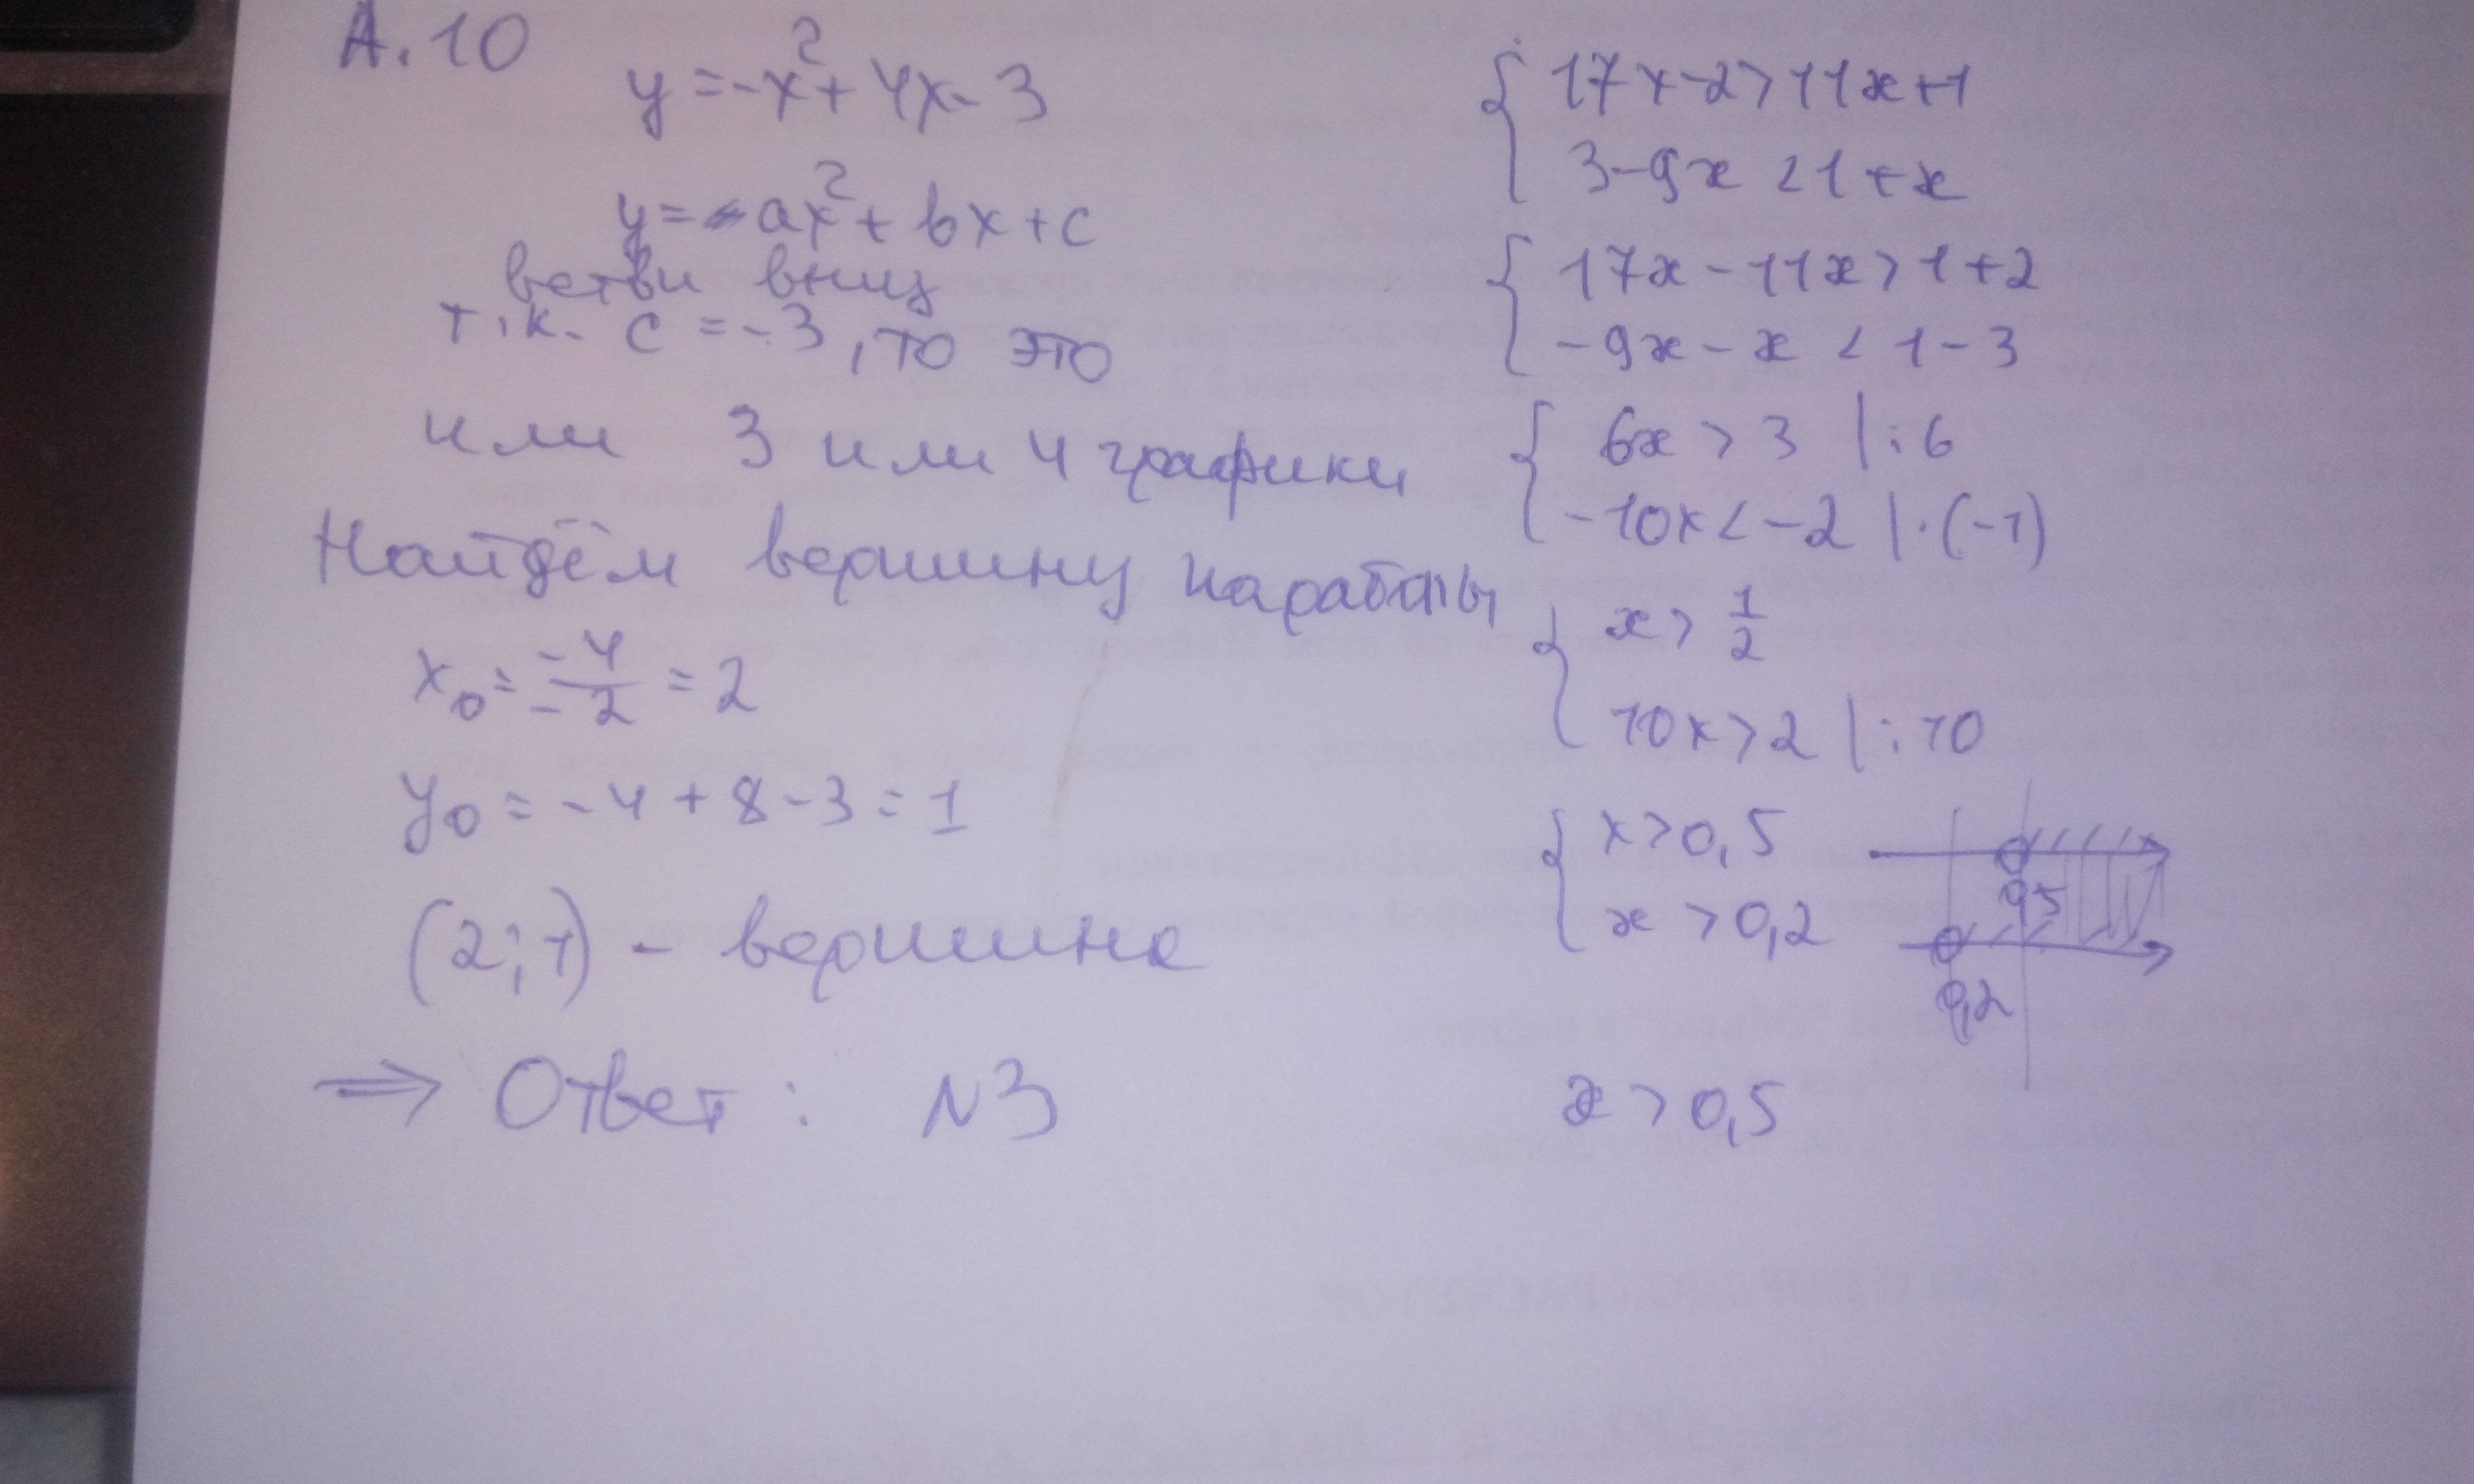 А.10
y = -x² + 4x - 3
y = ax² + bx + c
ветви вниз
т.к. c = -3, то это
или 3 или 4 графики
Найдём вершину параболы
x₀ = -4/-2 = 2
y₀ = -4 + 8 - 3 = 1
(2; 1) - вершина
⇒ Ответ: N3
{ 17x - 2 > 11x + 1
3 - 9x < 1 + x
{ 17x - 11x > 1 + 2
-9x - x < 1 - 3
{ 6x > 3 | : 6
-10x < -2 | · (-1)
{ x > 1/2
10x > 2 | : 10
{ x > 0,5
x > 0,2
0,5
0,2
x > 0,5